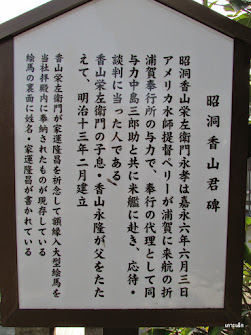 昭洞香山君碑
昭洞香山栄左衛門永孝は嘉永六年六月三日
アメリカ水師提督ペリーが浦賀に来航の折
浦賀奉行所の与力で、奉行の代理として同
与力中島三郎助と共に米艦に赴き、応待・
談判に当った人である
香山栄左衛門の子息・香山永隆が父をたた
えて、明治十三年二月建立
香山栄左衛門が家運隆昌を祈念して額縁入大型絵馬を
当社拝殿内に奉納されたものが現存している
絵馬の裏面に姓名・家運隆昌が書かれている